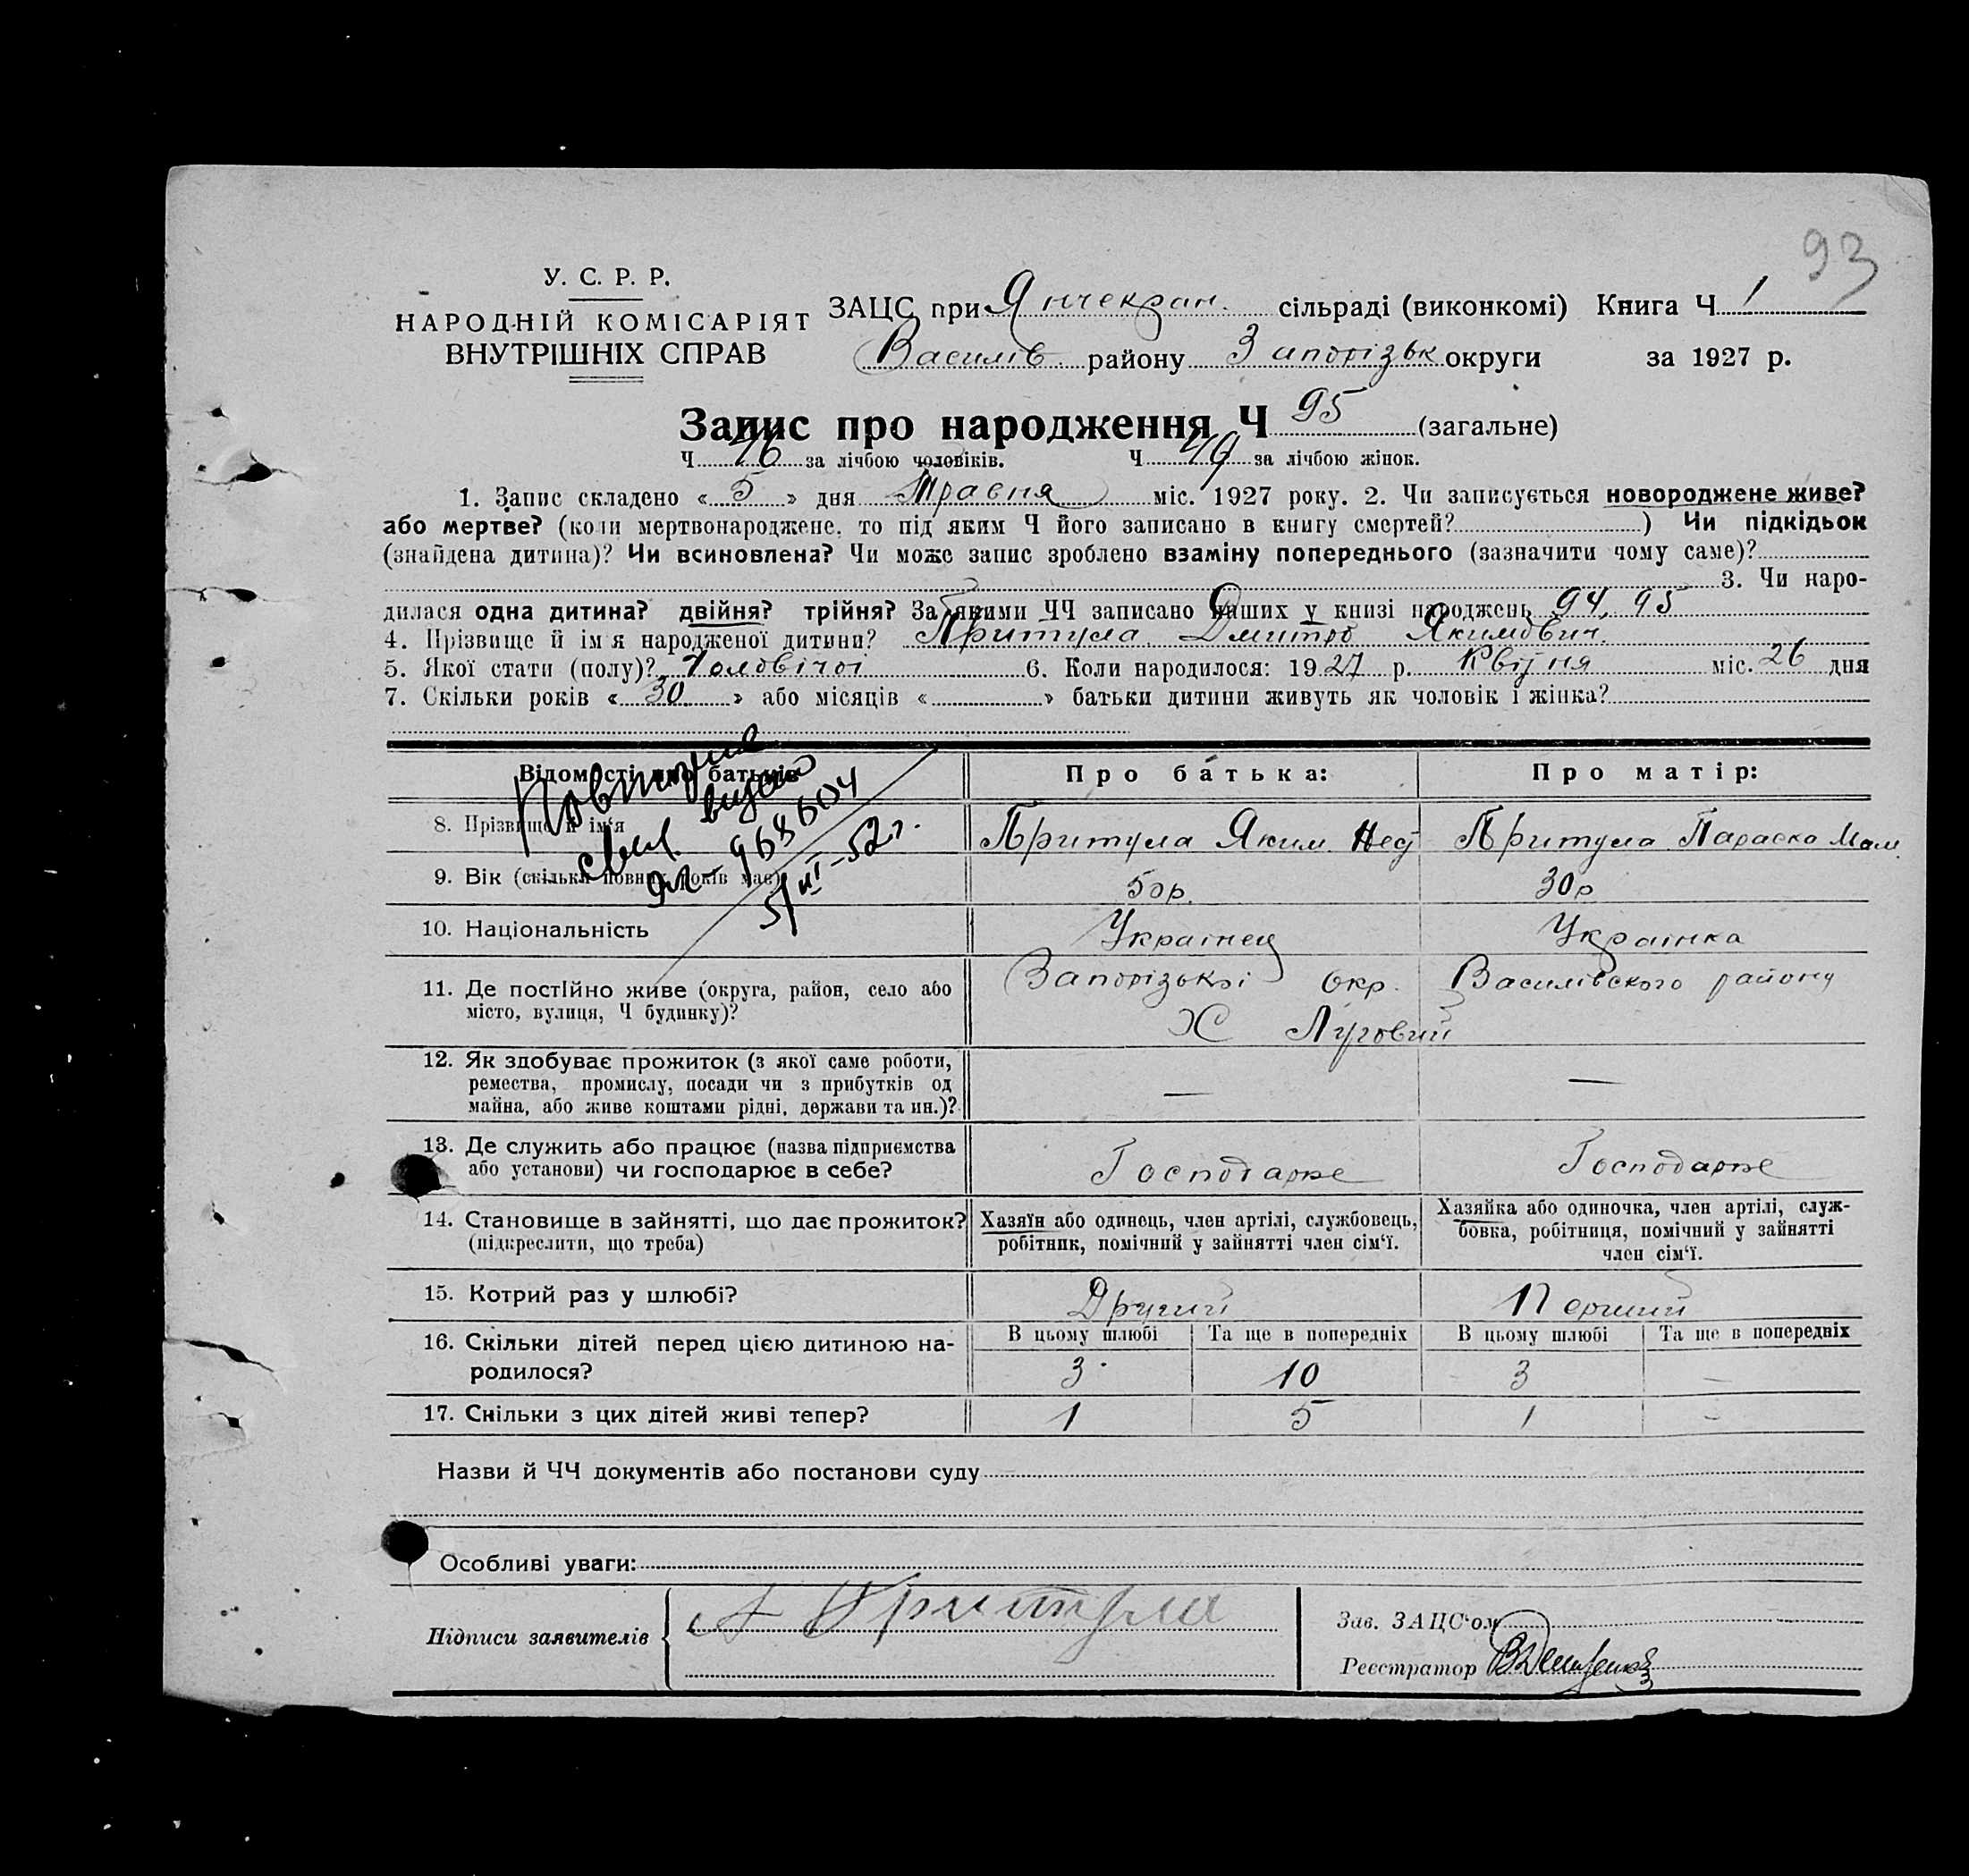 93
У. С. Р. Р.
НАРОДНІЙ КОМІСАРІЯТ
ВНУТРІШНІХ СПРАВ
ЗАЦС при Янчекран. сільраді (виконкомі) Книга Ч 1
Василів. району Запорізьк округи за 1927 р.
Запис про народження Ч 95 (загальне)
Ч 46 за лічбою чоловіків. Ч 49 за лічбою жінок.
1. Запис складено « 5 » дня Травня міс. 1927 року. 2. Чи записується новороджене живе?
або мертве? (коли мертвонароджене, то під яким Ч його записано в книгу смертей? ) Чи підкідьок
(знайдена дитина)? Чи всиновлена? Чи може запис зроблено взаміну попереднього (зазначити чому саме)?
3. Чи наро-
дилася одна дитина? двійня? трійня? За якими ЧЧ записано инших у книзі народжень 94, 95
4. Прізвище й ім'я народженої дитини? Притула Дмитро Якимович.
5. Якої стати (полу)? Чоловічої 6. Коли народилося: 1927 р. Квітня міс. 26 дня
7. Скільки років « 30 » або місяців « » батьки дитини живуть як чоловік і жінка?
Відомості про батьків Про батька: Про матір:
Повторне
свид. видано
968604
5/III-52 г.
8. Прізвище й ім'я Притула Яким Нед Притула Параска Мам.
9. Вік (скільки повних років має) 50 р. 30 р
10. Національність Українец Українка
11. Де постійно живе (округа, район, село або Запорізької Окр. Василівского району
місто, вулиця, Ч будинку)? Х Луговий
12. Як здобуває прожиток (з якої саме роботи,
ремества, промислу, посади чи з прибутків од — —
майна, або живе коштами рідні, держави та ин.)?
13. Де служить або працює (назва підприємства
або установи) чи господарює в себе? Господарює Господарює
14. Становище в зайнятті, що дає прожиток? Хазяїн або одинець, член артілі, службовець, Хазяйка або одиночка, член артілі, служ-
(підкреслити, що треба) робітник, помічний у зайнятті член сім'ї. бовка, робітниця, помічний у зайнятті
член сім'ї.
15. Котрий раз у шлюбі? Другий Перший
16. Скільки дітей перед цією дитиною на- В цьому шлюбі Та ще в попередніх В цьому шлюбі Та ще в попередніх
родилося? 3 10 3 —
17. Скільки з цих дітей живі тепер? 1 5 1 —
Назви й ЧЧ документів або постанови суду
Особливі уваги:
Підписи заявителів Притула
Зав. ЗАЦС'ом
Реєстратор